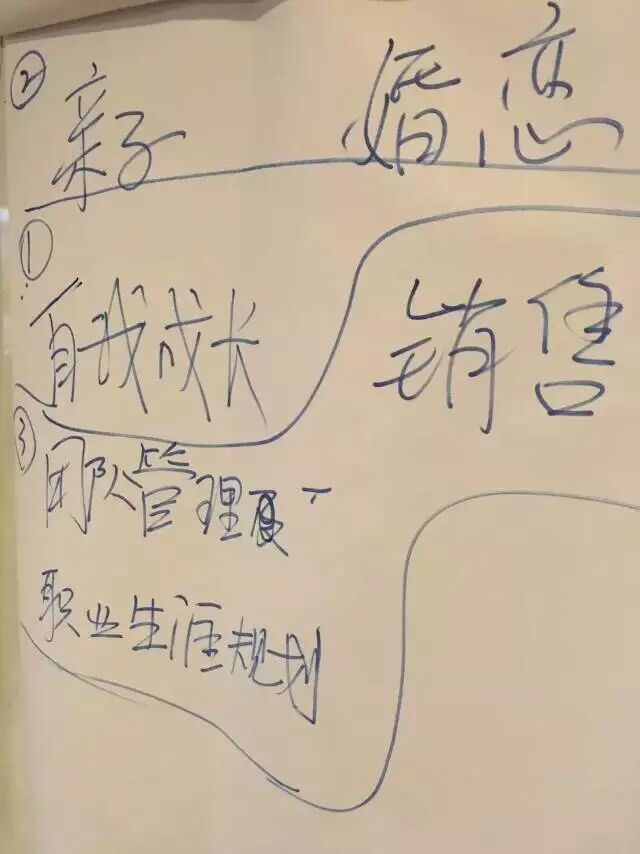 ② 亲子 婚恋
①
自我成长 销售
③ 团队管理
职业生涯规划